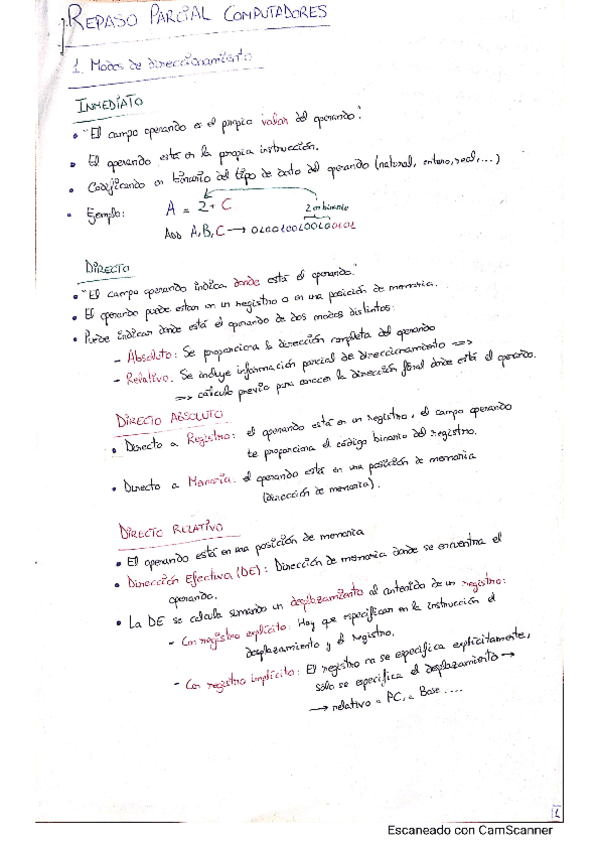 REPASO PARCIAL COMPUTADORES
1. Modos de direccionamiento
INMEDIATO
• "El campo operando es el propio valor del operando".
• El operando está en la propia instrucción.
• Codificando en binario del tipo de dato del operando (natural, entero, real, ...)
• Ejemplo: A = 2 + C
2 en binario
ADD A, B, C → 
DIRECTO
• "El campo operando indica donde está el operando."
• El operando puede estar en un registro o en una posición de memoria.
• Puede indicar donde está el operando de dos modos distintos:
- Absoluto: Se proporciona la dirección completa del operando
- Relativo: Se incluye información parcial de direccionamiento ⇒
⇒ cálculo previo para conocer la dirección final donde está el operando.
DIRECTO ABSOLUTO
• Directo a Registro: el operando está en un registro, el campo operando
te proporciona el código binario del registro.
• Directo a Memoria: el operando está en una posición de memoria
(dirección de memoria).
DIRECTO RELATIVO
• El operando está en una posición de memoria
• Dirección Efectiva (DE): Dirección de memoria donde se encuentra el
operando.
• La DE se calcula sumando un desplazamiento al contenido de un registro:
- Con registro explícito: Hay que especificar en la instrucción el
desplazamiento y el registro.
- Con registro implícito: El registro no se especifica explícitamente,
sólo se especifica el desplazamiento →
→ relativo a PC, a Base ....
1
Escaneado con CamScanner